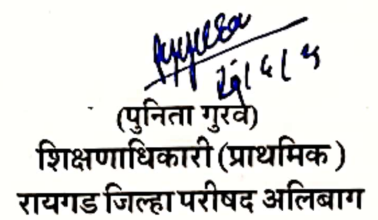 (पुनिता गुरव)
शिक्षणाधिकारी (प्राथमिक)
रायगड जिल्हा परीषद अलिबाग